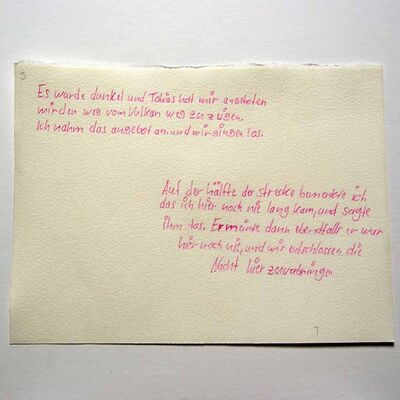 3
Es wurde dunkel und Tobias hat mir angeboten
mir den weg vom Vulkan weg zu zeigen.
Ich nahm das angebot an. und wir gingen los.
Auf der hälfte der strecke bemerkte ich
das ich hier noch nie lang kam, und sagte
ihm das. Er meinte dann ebendfalls er war
hier noch nie, und wir entschlossen die
Nacht hier zu verbringen
7